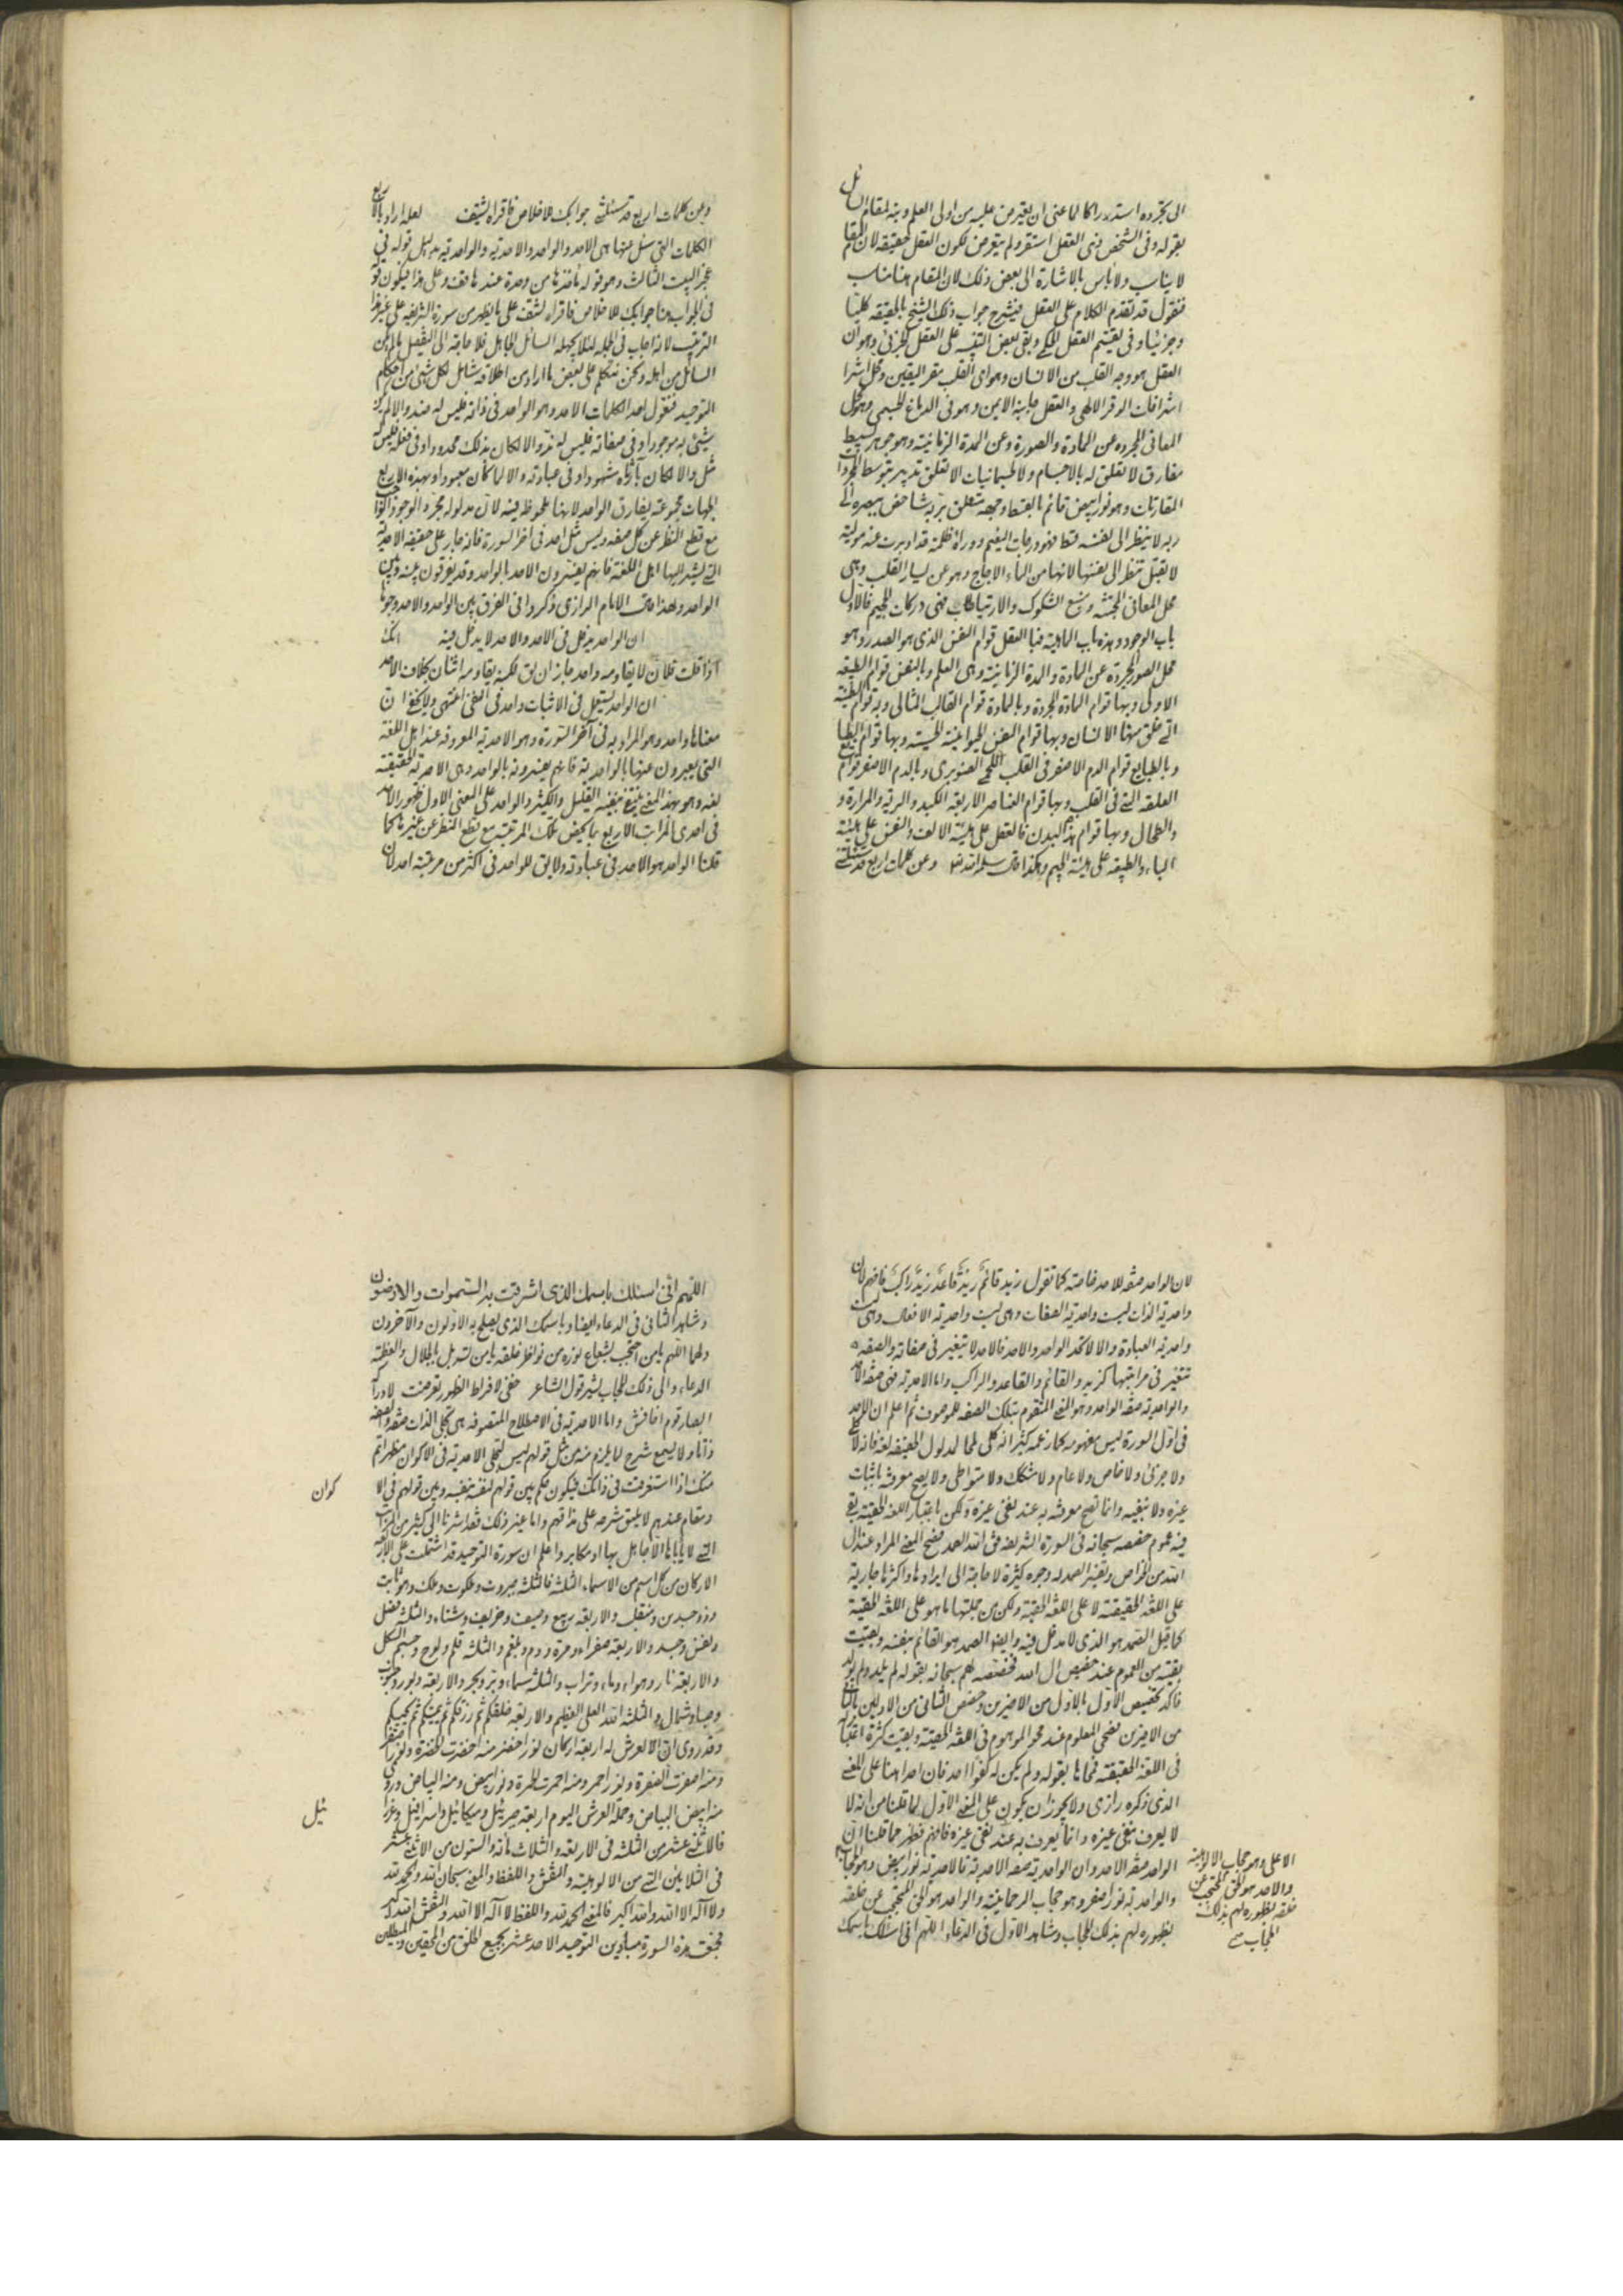 الى تجرده استدراكا لما عنى ان يعترض عليه من اولى العلم وبنه لمقام ان
بقوله وفى الشخص فنى العقل استقر ولم يتعرض لكون العقل حقيقة لان المقام
لا يناسب ولا باس بالاشارة الى بعض ذلك لان المقام هنا مناسب
فنقول قد تقدم الكلام على العقل فيشرح جواب ذلك الشيخ بالحقيقه كليا
وجزئيا وفى تقسيم العقل الكلى وبقى بعض التنبيه على العقل الجزئى وهو ان
العقل هو وجه القلب من الانسان وهو اى القلب مقر اليقين ومحل اشرا
اشراقات الوقر الالهى والعقل جانبه الايمن وهو فى الدماغ الجسمى وهو محل
المعانى المجرده عن المادة والصورة وعن المدة الزمانية وهو جوهر بسيط
مفارق لا تعلق له بالاجسام ولا الجسمانيات الا تعلق تدبير بتوسط المجردات
المقارنات وهو نور ابيض قائم بالبسط وجهه متعلق بربه شاخص ببصره الى
ربه لا ينظر الى نفسه قط فهو درجات النعيم ووراؤه ظلمة قد ادبرت عنه مولية
لا تقبل تنظر الى نفسها لانها من الماء الاجاج وهو عن يسار القلب وهى
محل المعانى المجتثة ومنبع الشكوك والارتياب فهى دركات الجحيم فالاول
باب الوجود وهذه باب الماهية فبا العقل قوام النفس الذى هو الصدر وهو
محل الصور المجردة عن المادة والمدة الزمانية وهى العلم وبالنفس قوام الطبيعة
الاولى وبها قوام المادة المجردة وبالمادة قوام القالب المثالى وبه قوام الطينة
التى خلق منها الانسان وبها قوام النفس الحيوانية الحسية وبها قوام الطبا
وبالطبايع قوام الدم الاصفر فى القلب اللحمى الصنوبرى وبالدم الاصفر قوام
العلقة التى فى القلب وبها قوام العناصر الاربعة الكبد والرية والمرارة و
والطحال وبها قوام هذا البدن فالعقل على هيئة الالف والنفس على هيئة
الباء والطبيعة على هيئة الجيم وهكذا قال سلمه الله وعن كلمات اربع قد سئلت
وعن كلمات اربع قد سئلت جوابك للاخلاص فاقراه لتشتف لعله اراد بالاربع
الكلمات التى سئل عنها هى الاحد والواحد والاحدية والواحدية بدليل قوله فى
عجز البيت الثالث وهو قوله ماخذها من وحدة عند ذا قف وعلى هذا فيكون قوله
فى الجواب هنا جوابك للاخلاص فاقراه لتشف على ما يظهر من سورة الشريفه على غير هذا
الترتيب لانه اجاب فى الجملة لئلا يجهله السائل الجاهل فلا حاجة الى التفصيل ما لم يكن
السائل من اهله ونحن نتكلم على بعض ما اراد من اطلاقه شامل لكل شئ من احكام
التوحيد فنقول احد الكلمات الاحد وهو الواحد فى ذاته فليس له ضد والا لم يكن
شئ به موجودا وفى صفاته فليس له ند والا لكان بذلك محدودا وفى فعله فليس له
مثل والا لكان باثاره مشهودا وفى عبادته والا لما كان معبودا وبهذه الاربع
الجهات مجموعة يفارق الواحد لانها ملحوظة فيه لان مدلوله مجرد الوجود الواجب
مع قطع النظر عن كل صفة وليس مثل احد فى اخر السورة فانه جار على حقيقة الاحدية
التى يشير اليها اهل اللغة فانهم يفسرون الاحد بالواحد وقد يفرقون بينه وبين
الواحد ولهذا قال الامام الرازى ذكروا فى الفرق بين الواحد والاحد وجوها
ان الواحد يدخل فى الاحد والاحد لا يدخل فيه انك
اذا قلت فلان لا يقاومه واحد جاز ان يق لكنه يقاومه اثنان بخلاف الاحد
ان الواحد يستعمل فى الاثبات واحد فى النفى انتهى ولا يخفى ان
معناها واحد وهو المراد به فى آخر السورة وهو الاحدية المعروفة عند اهل اللغة
التى يعبرون عنها بالواحدية فانهم يفسرونه بالواحد وهى الاحدية الحقيقية
لغة وهو بهذا المعنى ينتفى بنفيه القليل والكثير والواحد على المعنى الاول ظهور الاحد
فى احدى المراتب الاربع بما يخص تلك المرتبة مع قطع النظر عن غيرها كما
قلنا الواحد هو الاحد فى عبادته ولا يق للواحد فى اكثر من مرتبة احد لان
لان الواحد صفة للاحد خاصة كما تقول زيد قائم زيد قاعد زيد راكب فافهم لان
واحدية الذات ليست واحدية الصفات وهى ليست واحدية الافعال وهى ليست
واحدية العبادة والا لاتحد الواحد والاحد فالاحد لا يتغير فى صفاته والصفة
تتغير فى مراتبها كزيد والقائم والقاعد والراكب واما الاحدية فهى صفة الاحد
والواحدية صفة الواحد وهو المتقوم بتلك الصفة للموصوف ثم اعلم ان الاحد
فى اول السورة ليس مفهومه كما زعمه كثير انه كلى لما لمدلول الحقيقة لغة فانه لا كلى
ولا جزئى ولا خاص ولا عام ولا مشكك ولا متواطى ولا يصح معرفته باثبات
غيره ولا بنفيه وانما تصح معرفته به عند نفى غيره ولكن باعتبار اللغة الحقيقية بقى
فيه عموم خصصه سبحانه فى السورة الشريفة فى الله الصمد فصح المعنى المراد عند ال
الله من الخواص ولتفسير الصمد وجوه كثيرة لا حاجة الى ايرادها واكثرها جارية
على اللغة الحقيقية لا على اللغة الحقية ولكن من جملتها ما هو على اللغة الحقية
كما قيل الصمد هو الذى لا مدخل فيه وايضا الصمد هو القائم بنفسه وبقيت
بقية من العموم عند تخصيص ال الله فخصصه لهم سبحانه بقوله لم يلد ولم يولد
فاكد تخصيص الاول بالاول من الاخيرين وخصص الثانى من الاولين بالثانى
من الاخيرين فصح المعلوم عند محو الموهوم فى اللغة الحقية وبقيت كثرة اعتبارية
فى اللغة الحقيقية فمحاها بقوله ولم يكن له كفوا احد فان احد هنا على المعنى
الذى ذكره رازى ولا يجوز ان يكون على المعنى الاول لما قلنا من انه لا
لا يعرف بنفى غيره وانما يعرف به عند نفى غيره فافهم فظهر مما قلنا ان
الواحد صفة الاحد وان الواحدية صفة الاحدية فالاحدية نور ابيض وهو الحجاب
والواحدية نور اصفر وهو حجاب الرحمانية والواحد هو الحق المحتجب عن خلقه
بظهوره لهم بذلك الحجاب وشاهد الاول فى الدعاء اللهم انى اسئلك باسمك
الاعلى وهو حجاب الالوهية
والاحد هو الحق المحتجب عن
خلقه بظهوره لهم بذلك
الحجاب صح
اللهم انى اسئلك باسمك الذى اشرقت به السموات والارضون
وشاهد الثانى فى الدعاء ايضا وباسمك الذى يصلح به الاولون والآخرون
ولهما اللهم يا من احتجب بشعاع نوره عن نواظر خلقه يا من تسربل بالجلال والعظمة
الدعاء والى ذلك الحجاب يشير قول الشاعر خفى لافراط الظهور تعرضت لادراكه
ابصار قوم اخافش واما الاحدية فى الاصطلاح المتصوفة هى تجلى الذات صفة والصفة
ذاتا ولا يسع شرح لما يلزم منه من مثل قولهم ليس لتجلى الاحدية فى الاكوان مظهر اتم
منك اذا استغرقت فى ذاتك فيكون حكم بين قولهم لنفسه بنفسه وبين قولهم فى الا
كوان
ومقام عندهم لا يليق شرحه على مذاقهم واما غير ذلك فقد اشرنا الى كثير من المراتب
التى لا ياباها الا جاهل بها او مكابر واعلم ان سورة التوحيد قد اشتملت على الاربعة
الاركان من كل اسم من الاسماء الثلثة فالثلثة جبروت وملكوت وملك وهو ثابت
وذو جسدين ومنقلب والاربعة ربيع وصيف وخريف وشتاء والثلثة عقل
ونفس وجسد والاربعة صفراء ومرة ودم وبلغم والثلثة قلم ولوح وجسم الكل
والاربعة نار وهواء وماء وتراب والثلثة سماء وبر وبحر والاربعة دبور وجنوب
وصبا وشمال والثلثة الله العلى العظيم والاربعة خلقكم ثم رزقكم ثم يميتكم ثم يحييكم
وقد روى ان للعرش له اربعة اركان نور اخضر منه اخضرت الخضرة ونور اصفر
ومنه اصفرت الصفرة ونور احمر ومنه احمرت الحمرة ونور ابيض ومنه البياض وروى
منه ابيض البياض وحملة العرش اليوم اربعة جبرئيل وميكائيل واسرافيل وعزرا
ئيل
فالاثنى عشر من الثلثة فى الاربعة والثلاث مأته والستون من الاثنى عشر
فى الثلاثين التى من الالوهية والنقش واللفظ والمعنى سبحان الله والحمد لله
ولا اله الا الله والله اكبر فالمعنى الحمد لله واللفظ لا اله الا الله والنقش الله اكبر
فجمعت هذه السورة مبادين التوحيد الاحد عشر بجميع الخلق من المحقين والمبطلين